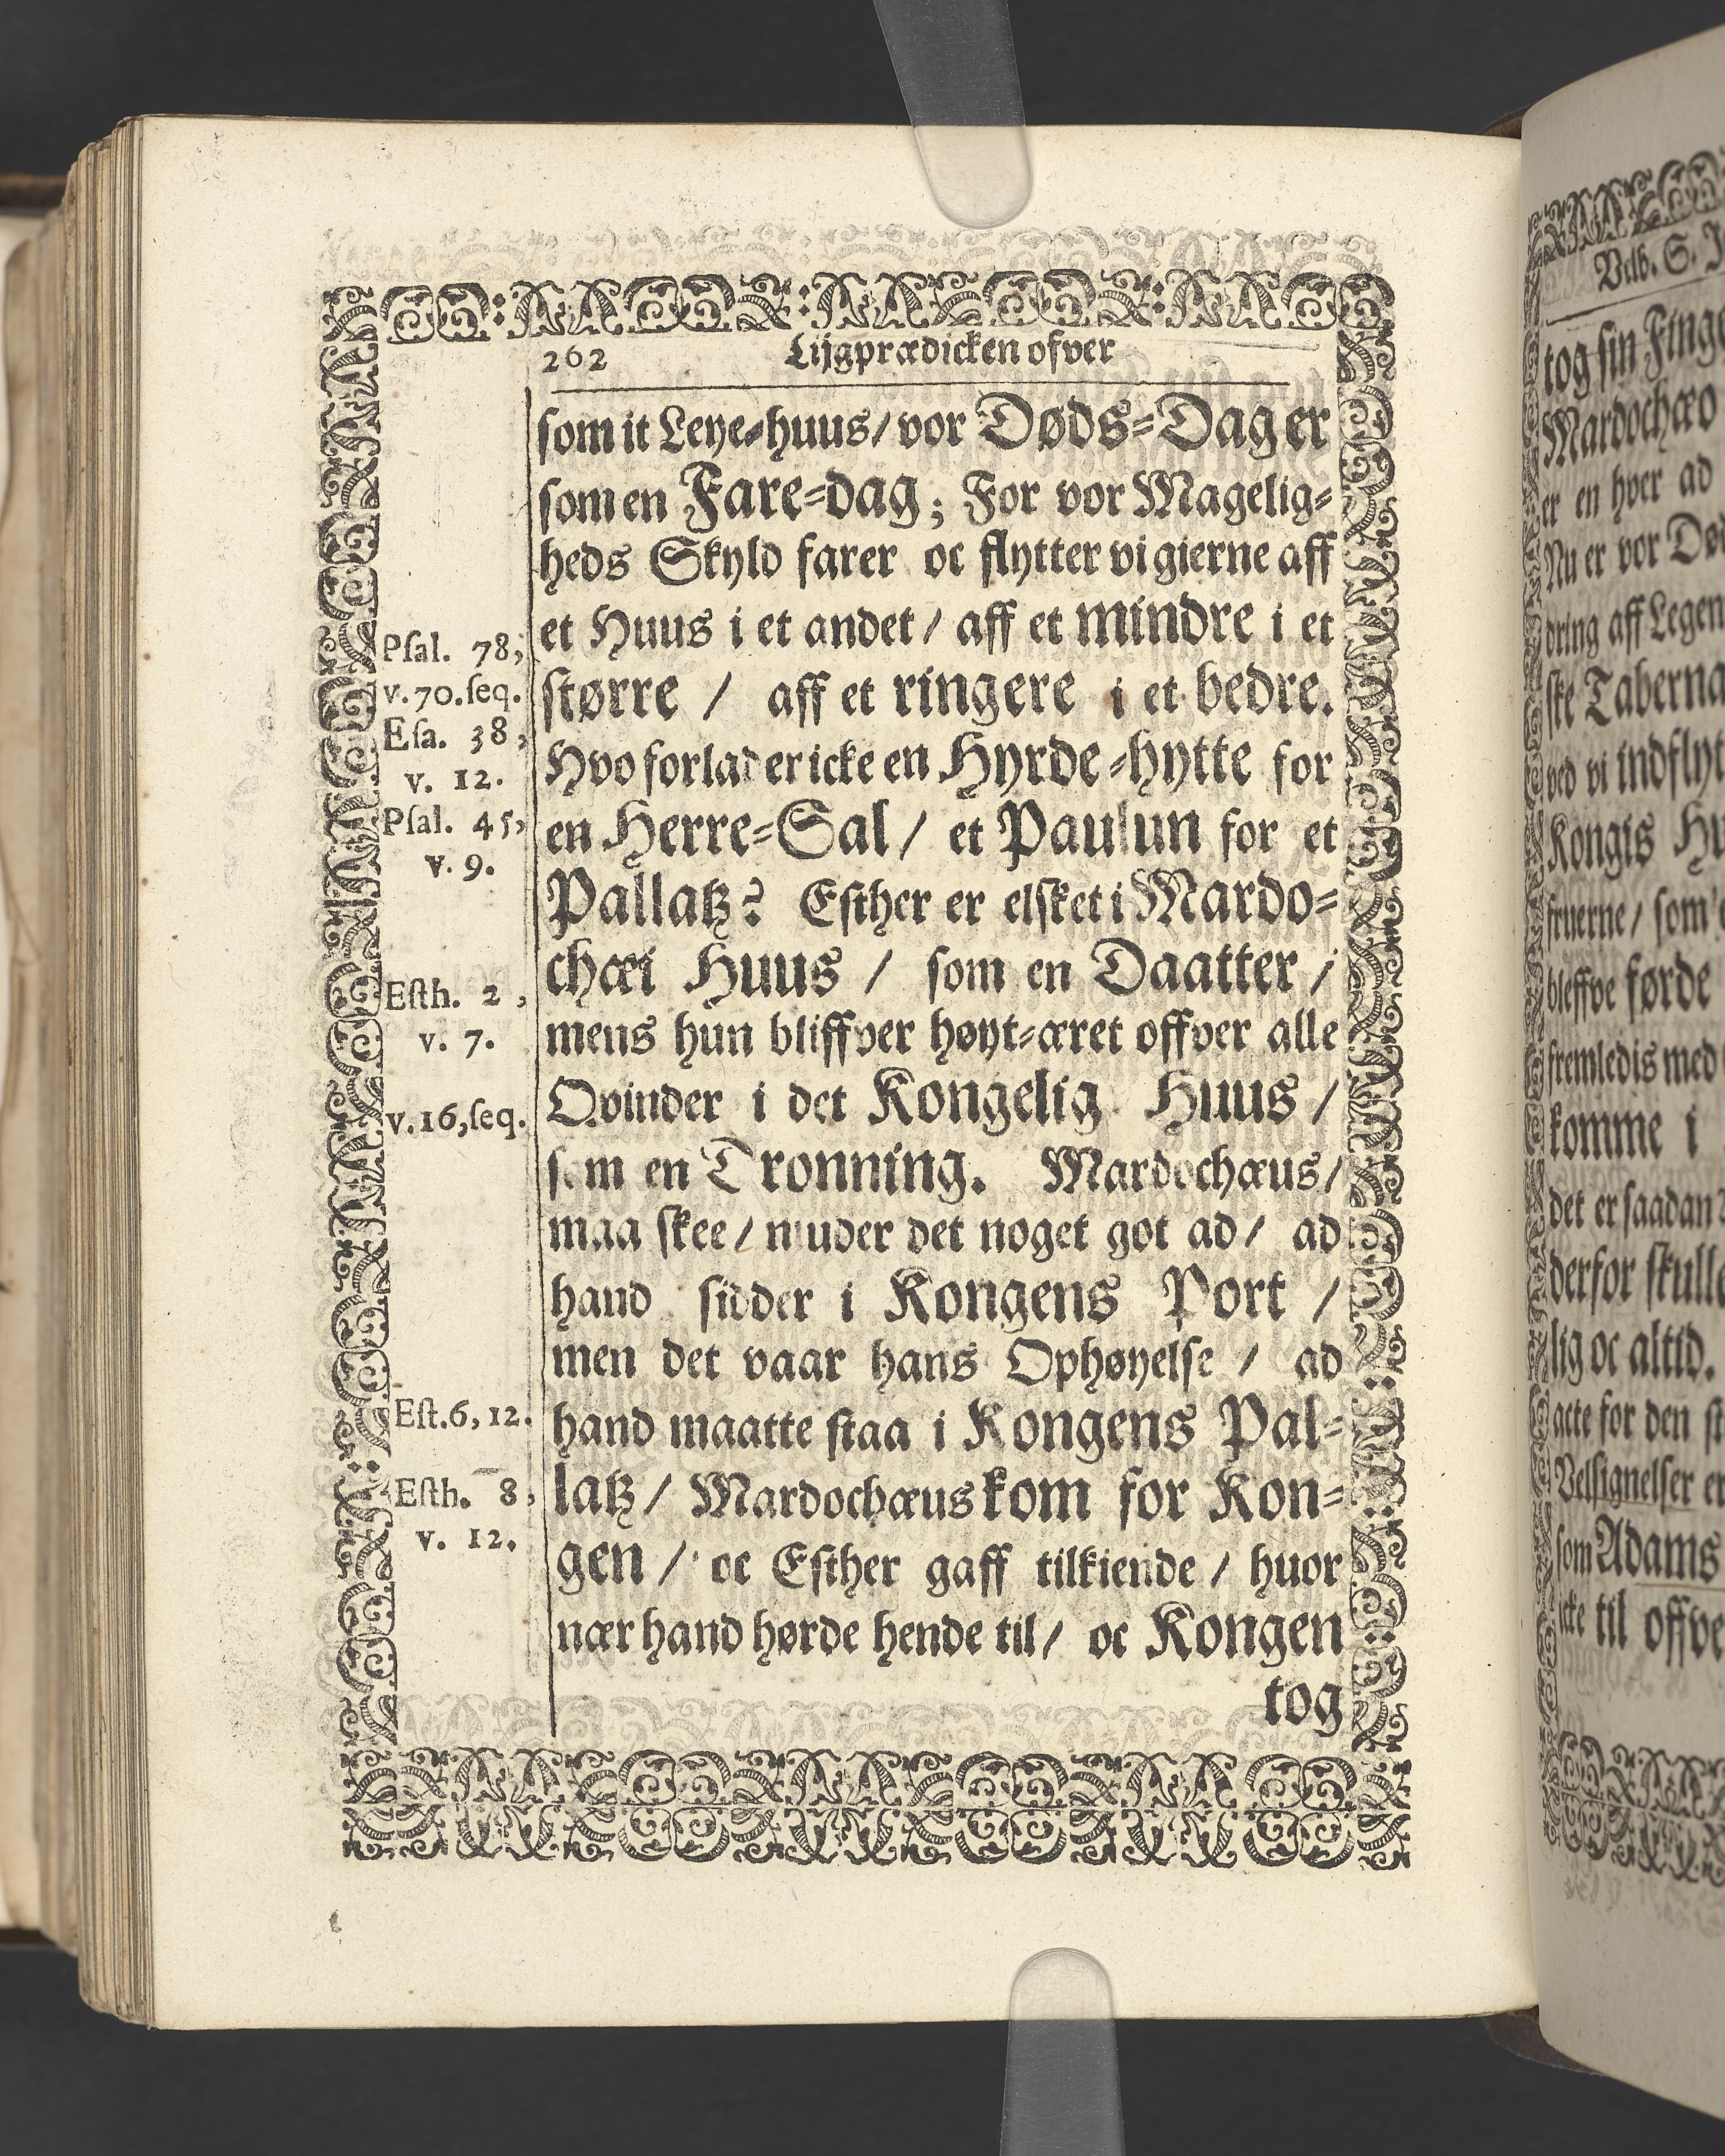 262 Lijgprædicken ofver
som it Leye-huus/ vor Døds-Dag er
som en Fare-dag; For vor Magelig-
heds Skyld farer oc flytter vi gierne aff
et Huus i et andet / aff et mindre i et
større / aff et ringere i et bedre.
Hvo forlader icke en Hyrde-hytte for
en Herre-Sal / et Paulun for et
Pallatz? Esther er elsket i Mardo-
chæi Huus / som en Daatter /
mens hun bliffver høyt-æret offver alle
Qvinder i det Kongelig Huus /
som en Dronning. Mardochæus/
maa skee / muder det noget got ad / ad
hand sidder i Kongens Port /
men det vaar hans Ophøyelse / ad
hand maatte staa i Kongens Pal-
latz / Mardochæus kom for Kon-
gen / oc Esther gaff tilkiende / huor
nær hand hørde hende til / oc Kongen
tog
Psal. 78,
v. 70. seq.
Esa. 38,
v. 12.
Psal. 45,
v. 9.
Esth. 2,
v. 7.
v. 16, seq.
Est. 6, 12.
Esth. 8,
v. 12.
Velb. S.
tog sin
Mardochæo
er en hver ad
Nu er vor
dring aff
ske
ved vi
Kongis
fruerne / som
bleffve førde
fremledis med
komme i
det er saadan
derfor
lig oc altid.
acte for den
Velsignelser
som Adams
icke til